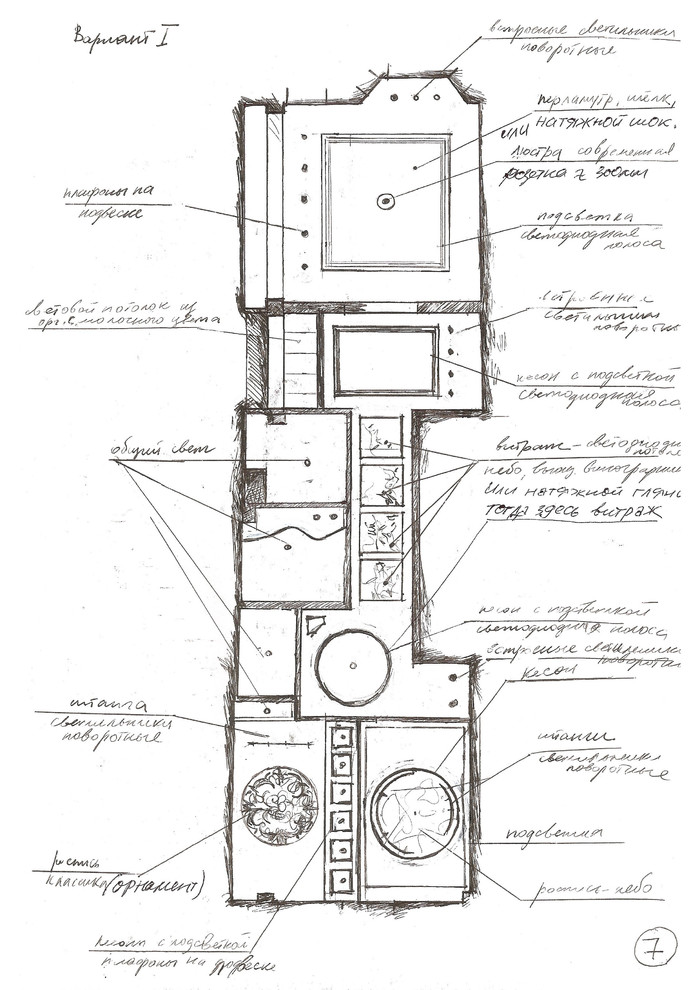 Вариант I
встроеные светильники
поворотные
перламутр, шёлк,
или натяжной шок.
люстра современная
розетка 300мм
плафоны на
подвеске
подсветка
светодиодная
полоса
световой потолок из
орг.с. молочного цвета
встроенные
светильники
поворотные
кесон с подсветкой
светодиодная полоса
общий свет
витраж - светодиоды
небо, виноград
или натяжной глянец
тогда здесь витраж
кесон с подсветкой
светодиодная полоса
встроеные светильники
поворотные
кесон
штанга
светильники
поворотные
штанги
светильники
поворотные
подсветка
роспись
классика (орнамент)
роспись-небо
кесоны с подсветкой
плафоны на подвеске
7